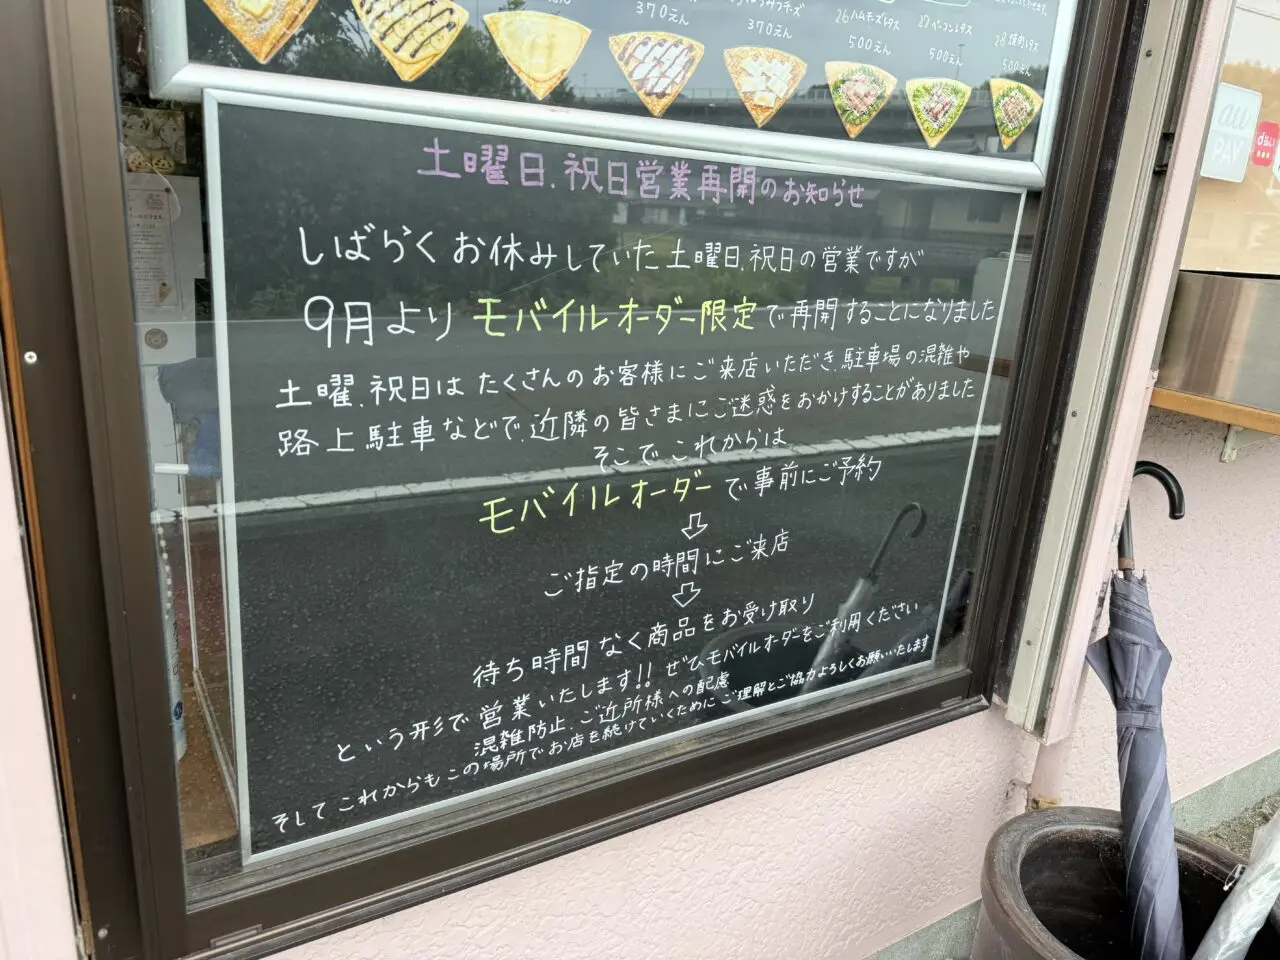 370えん
370えん
26 ハムチーズレタス
500えん
27 ベーコンレタス
500えん
28 焼肉レタス
500えん
土曜日、祝日営業再開のお知らせ
しばらくお休みしていた土曜日、祝日の営業ですが
9月よりモバイルオーダー限定で再開することになりました
土曜、祝日はたくさんのお客様にご来店いただき、駐車場の混雑や
路上駐車などで、近隣の皆さまにご迷惑をおかけすることがありました
そこでこれからは
モバイルオーダーで事前にご予約
⇩
ご指定の時間にご来店
⇩
待ち時間なく商品をお受け取り
という形で営業いたします!! ぜひモバイルオーダーをご利用ください
混雑防止、ご近所様への配慮
そしてこれからもこの場所でお店を続けていくためにご理解とご協力よろしくお願いいたします
au
PAY
d払い